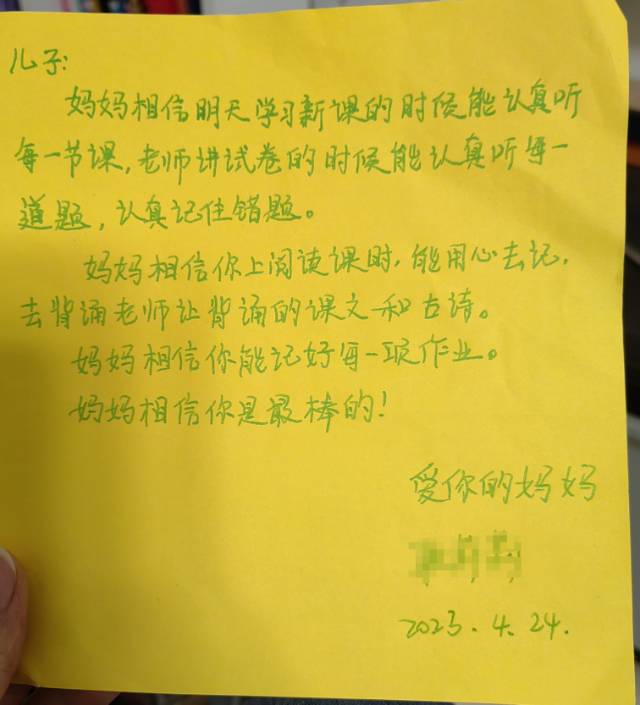 儿子:
妈妈相信明天学习新课的时候能认真听
每一节课,老师讲试卷的时候能认真听每一
道题,认真记住错题。
妈妈相信你上阅读课时,能用心去记,
去背诵老师让背诵的课文和古诗。
妈妈相信你能记好每一项作业。
妈妈相信你是最棒的!
爱你的妈妈
2023.4.24.